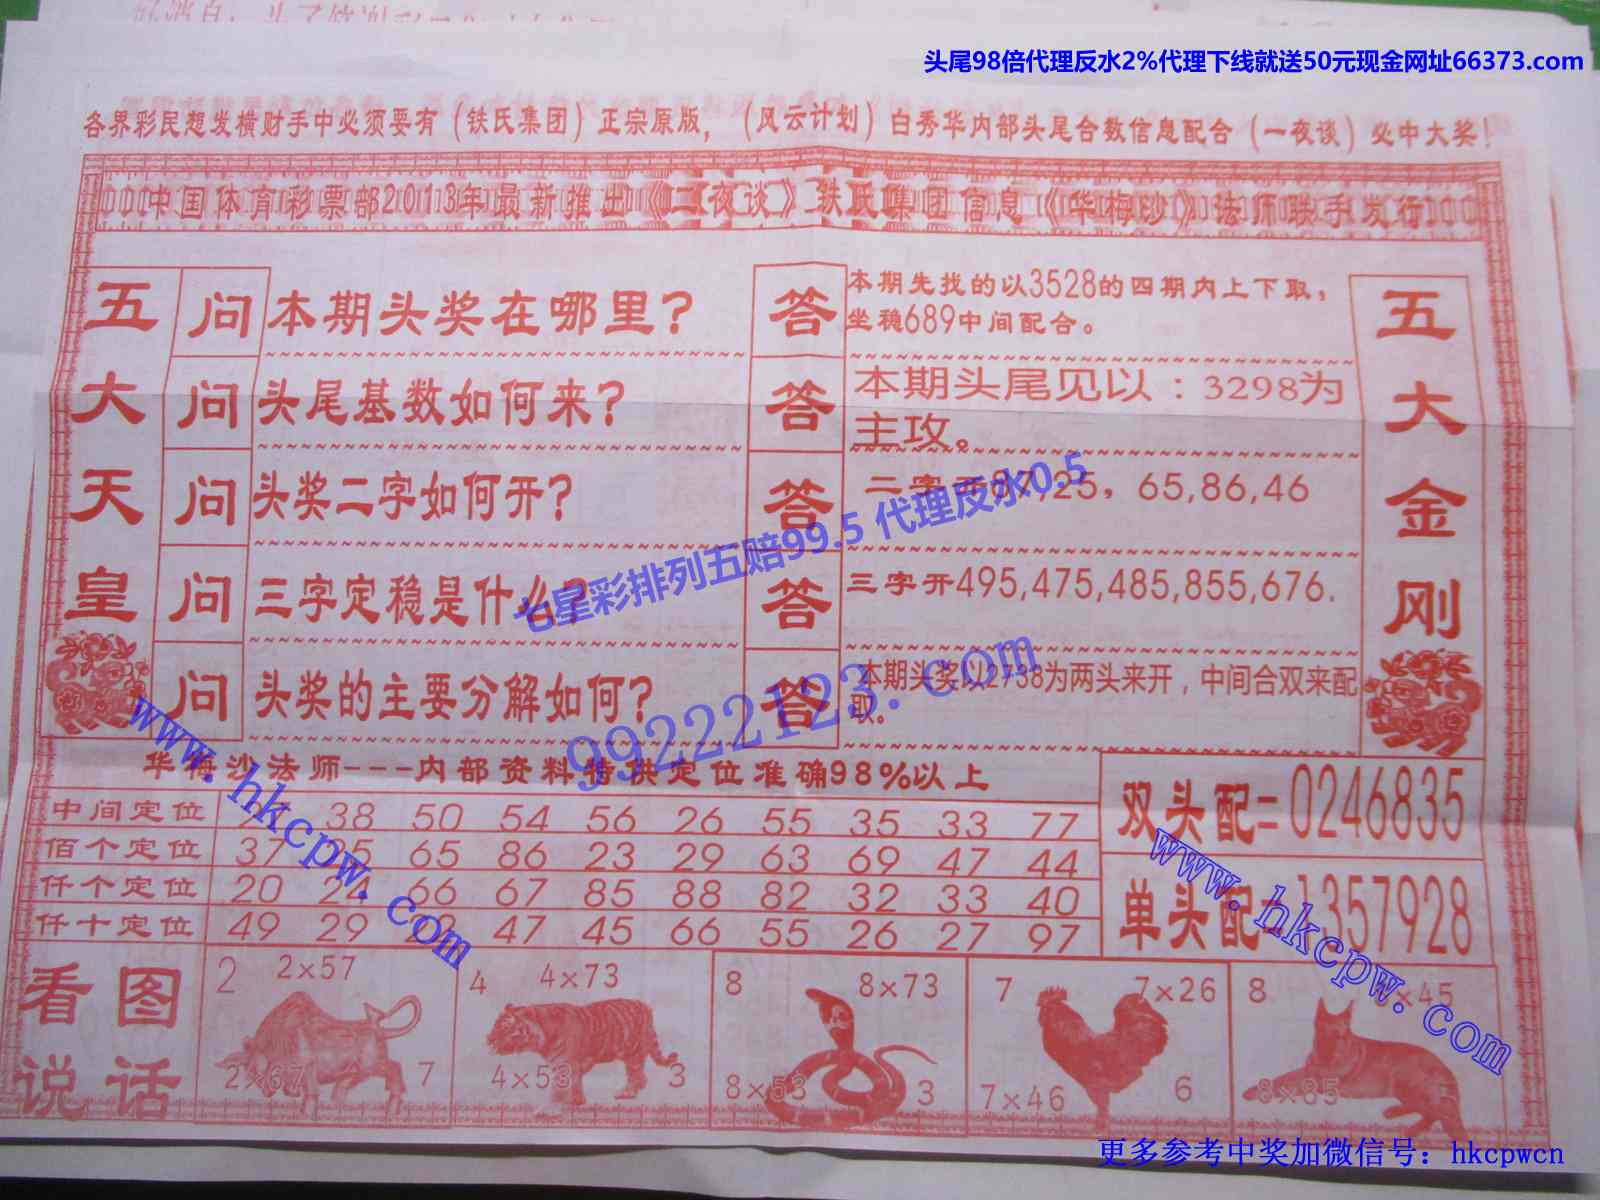 头尾98倍代理反水2%代理下线就送50元现金网址66373.com
各界彩民想发横财手中必须要有（铁氏集团）正宗原版，（风云计划）白秀华内部头尾合数信息配合（一夜谈）必中大奖！
中国体育彩票部2013年最新推出《二夜谈》铁氏集团信息《华梅沙》法师联手发行
五大天皇
问 本期头奖在哪里？
答 本期先找的以3528的四期内上下取，
坐稳689中间配合。
问 头尾基数如何来？
答 本期头尾见以：3298为
主攻。
问 头奖二字如何开？
答 二字开87,25，65,86,46
问 三字定稳是什么？
答 三字开495,475,485,855,676.
问 头奖的主要分解如何？
答 本期头奖以2738为两头来开，中间合双来配
取。
五大金刚
七星彩排列五赔99.5 代理反水0.5
99222123.com
www.hkcpw.com
华梅沙法师---内部资料特供定位准确98%以上
中间定位 38 50 54 56 26 55 35 33 77
佰个定位 37 25 65 86 23 29 63 69 47 44
仟个定位 20 24 66 67 85 88 82 32 33 40
仟十定位 49 29 47 45 66 55 26 27 97
双头配=0246835
单头配=1357928
www.hkcpw.com
看图
说话
2 2×57
2×67 7
4 4×73
4×53 3
8 8×73
8×53 3
7 7×26
7×46 6
8 ×45
8×85
更多参考中奖加微信号：hkcpwcn